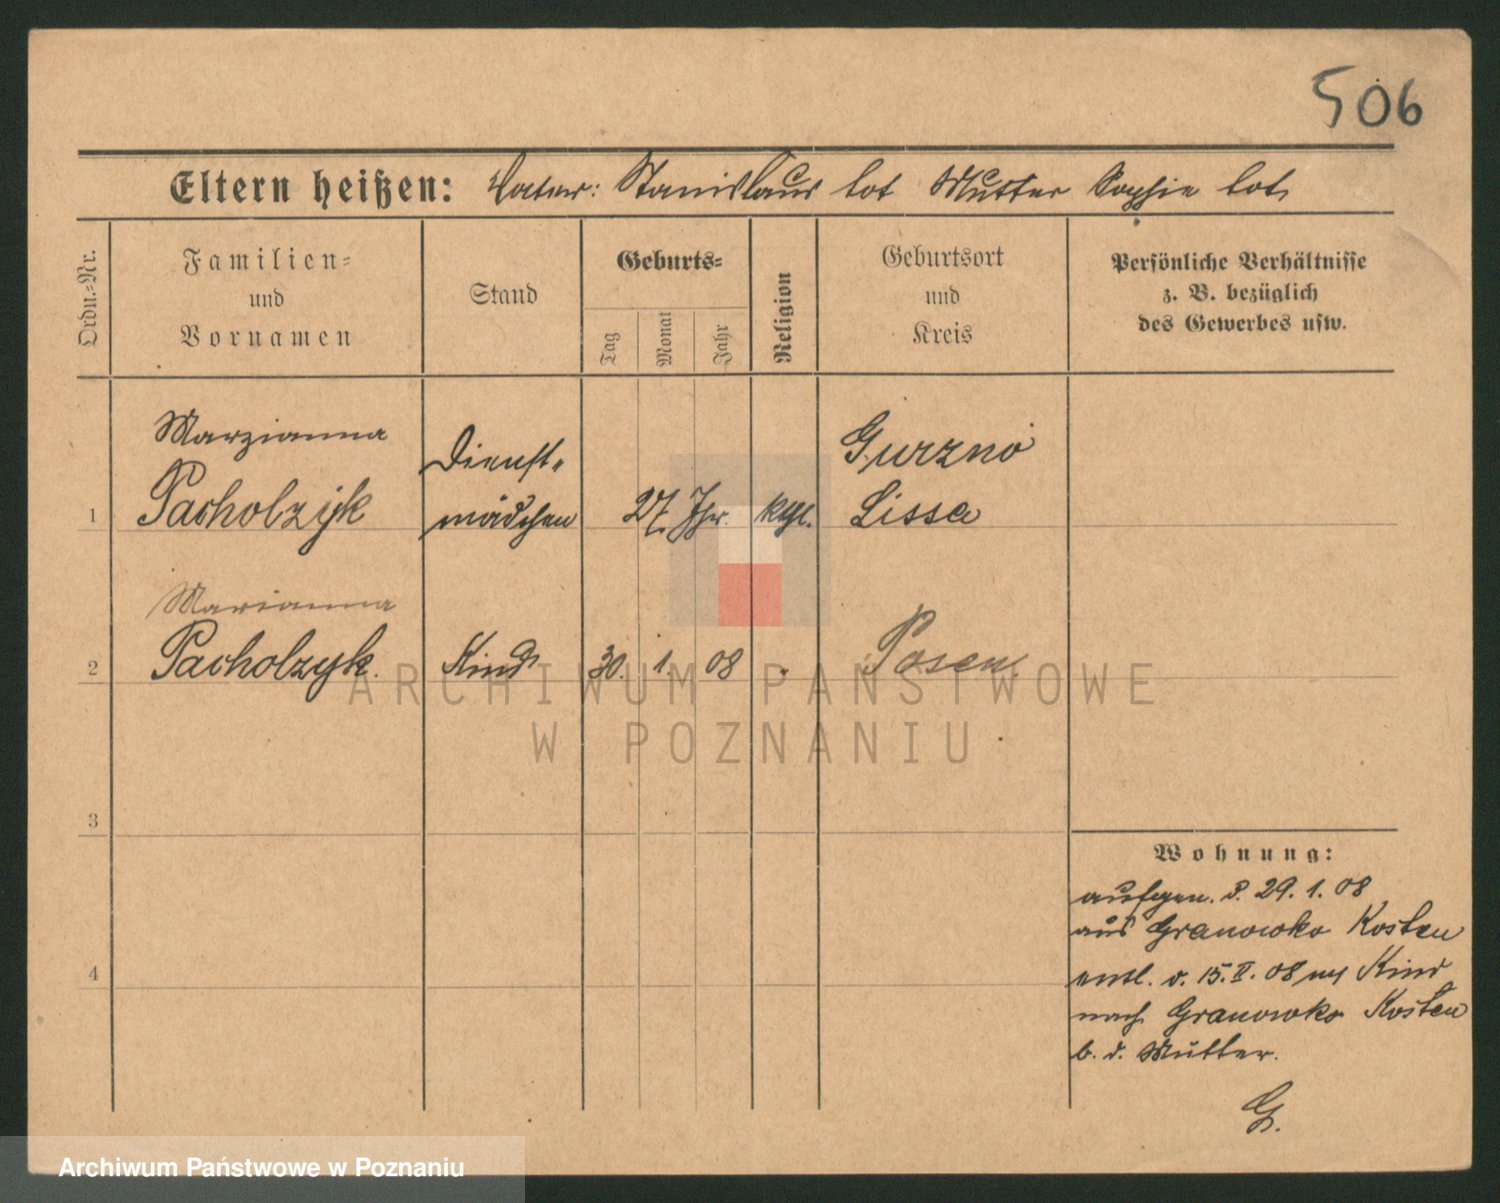 506
Eltern heißen: Vater: Stanislaus tot Mutter Sophie tot
Ordn.-Nr.
Familien-
und
Vornamen
Stand
Geburts-
Tag
Monat
Jahr
Religion
Geburtsort
und
Kreis
Persönliche Verhältnisse
z. B. bezüglich
des Gewerbes usw.
Marzianna
Pacholzijk
1
Dienst-
mädchen
27 Jhr.
kthl.
Gurzno
Lissa
Marianna
Pacholzyk.
2
Kind
30. 1. 08
Posen.
3
4
Wohnung:
aufgen. d. 29. 1. 08
aus Granowko Kosten
entl. d. 15. II. 08 mit Kind
nach Granowko Kosten
b. d. Mutter.
G.
ARCHIWUM PAŃSTWOWE
W POZNANIU
Archiwum Państwowe w Poznaniu